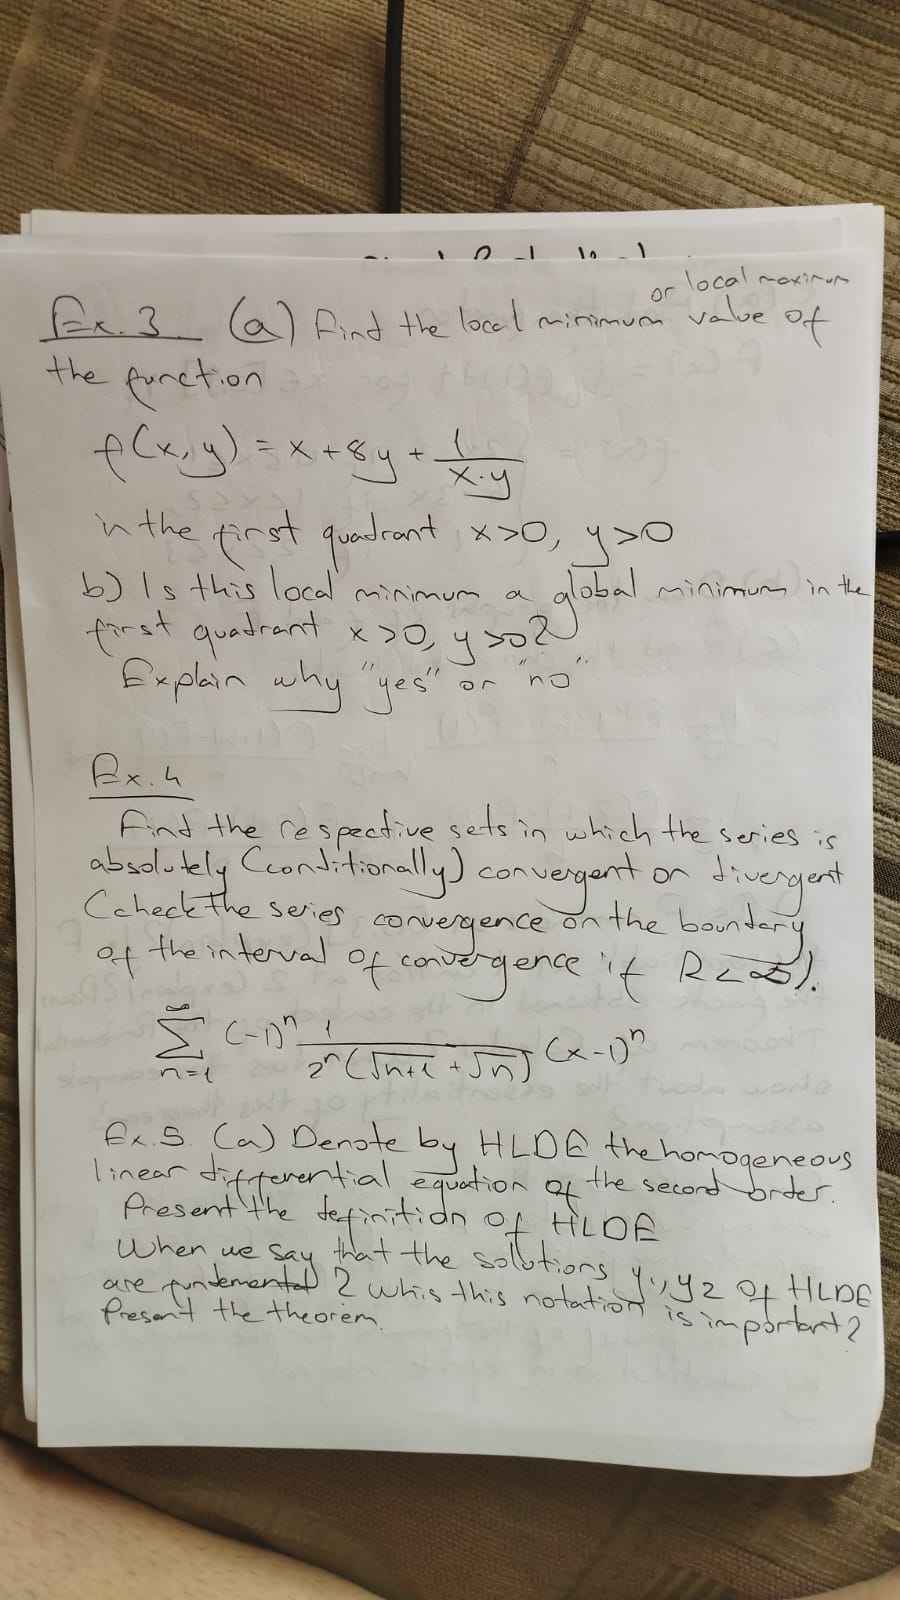 or local maximum
Ex. 3 (a) Find the local minimum value of
the function
f(x, y) = x + 8y + 1/(x·y)
in the first quadrant x>0, y>0
b) Is this local minimum a global minimum in the
first quadrant x>0, y>0?
Explain why "yes" or "no"
Ex. 4
Find the respective sets in which the series is
absolutely (conditionally) convergent or divergent
(check the series convergence on the boundary
of the interval of convergence if R<∞).
∑_{n=1}^{∞} (-1)^n 1/(2^n(√n+1 + √n)) (x-1)^n
Ex. 5. (a) Denote by HLDE the homogeneous
linear differential equation of the second order.
Present the definition of HLDE
When we say that the solutions y1, y2 of HLDE
are fundemental? Whis this notation is important?
Present the theorem.